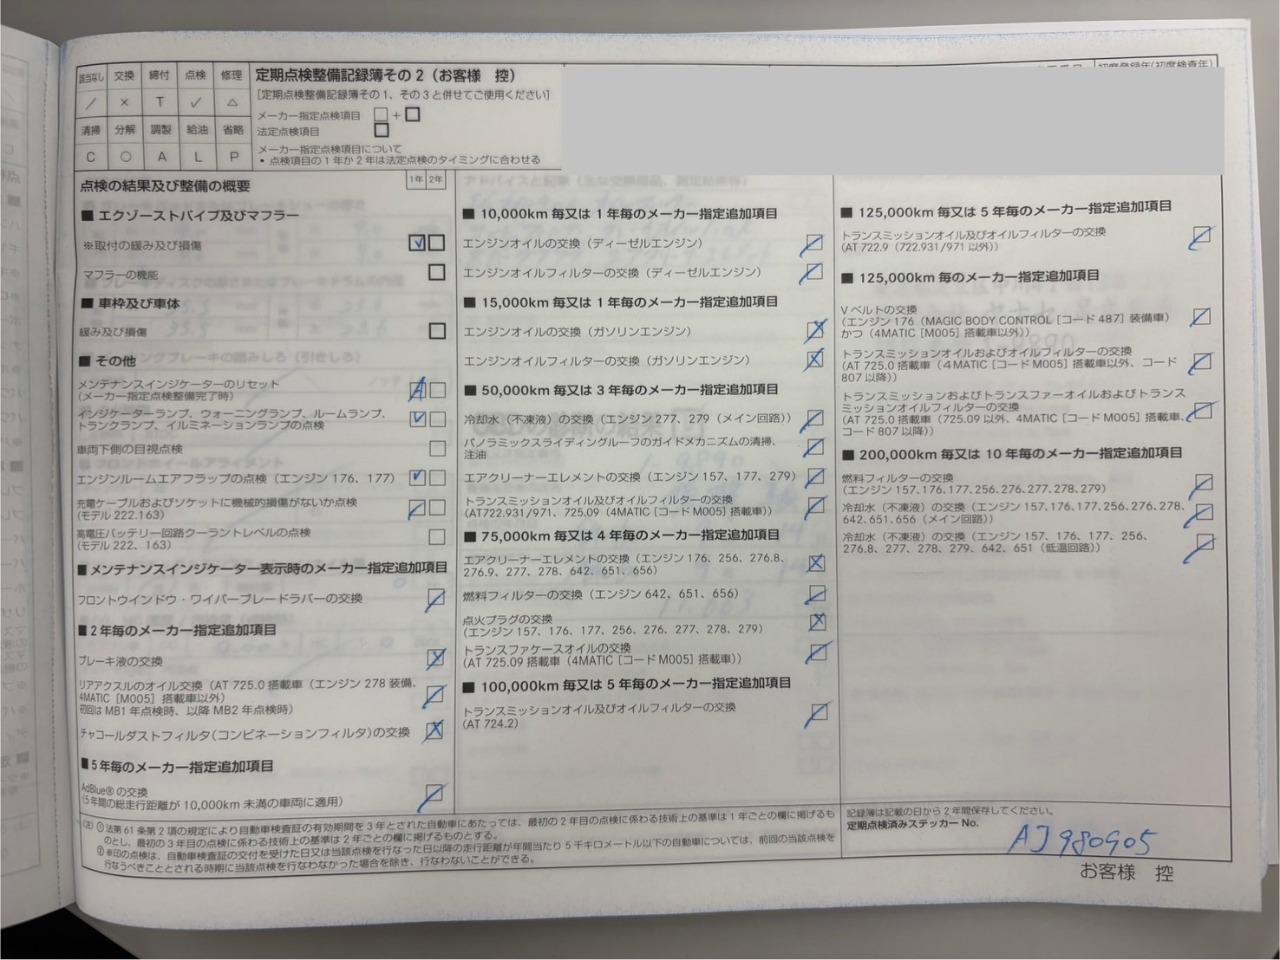 該当なし 交換 締付 点検 修理
／ × T ✓ △
清掃 分解 調製 給油 省略
C ○ A L P
定期点検整備記録簿その2（お客様 控）
［定期点検整備記録簿その1、その3と併せてご使用ください］
メーカー指定点検項目 □＋□
法定点検項目 □
メーカー指定点検項目について
・点検項目の1年か2年は法定点検のタイミングに合わせる
初度登録年(初度検査年)
点検の結果及び整備の概要
1年 2年
■ エクゾーストパイプ及びマフラー
※取付の緩み及び損傷 ✓
マフラーの機能
■ 車枠及び車体
緩み及び損傷
■ その他
メンテナンスインジケーターのリセット
（メーカー指定点検整備完了時）
インジケーターランプ、ウォーニングランプ、ルームランプ、
トランクランプ、イルミネーションランプの点検 ✓
車両下側の目視点検
エンジンルームエアフラップの点検（エンジン 176、177） ✓
充電ケーブルおよびソケットに機械的損傷がないか点検
（モデル 222.163） ／
高電圧バッテリー回路クーラントレベルの点検
（モデル 222、163）
■ メンテナンスインジケーター表示時のメーカー指定追加項目
フロントウインドウ・ワイパーブレードラバーの交換 ／
■ 2年毎のメーカー指定追加項目
ブレーキ液の交換 ×
リアアクスルのオイル交換（AT 725.0 搭載車（エンジン 278 装備、
4MATIC［M005］搭載車以外）
初回は MB1 年点検時、以降 MB2 年点検時） ／
チャコールダストフィルタ（コンビネーションフィルタ）の交換 ×
■ 5年毎のメーカー指定追加項目
AdBlue®の交換
（5年間の総走行距離が 10,000km 未満の車両に適用） ／
■ 10,000km 毎又は 1 年毎のメーカー指定追加項目
エンジンオイルの交換（ディーゼルエンジン） ／
エンジンオイルフィルターの交換（ディーゼルエンジン） ／
■ 15,000km 毎又は 1 年毎のメーカー指定追加項目
エンジンオイルの交換（ガソリンエンジン） ×
エンジンオイルフィルターの交換（ガソリンエンジン） ×
■ 50,000km 毎又は 3 年毎のメーカー指定追加項目
冷却水（不凍液）の交換（エンジン277、279（メイン回路）） ／
パノラミックスライディングルーフのガイドメカニズムの清掃、
注油 ／
エアクリーナーエレメントの交換（エンジン 157、177、279） ／
トランスミッションオイル及びオイルフィルターの交換
（AT722.931/971、725.09（4MATIC［コード M005］搭載車）） ／
■ 75,000km 毎又は 4 年毎のメーカー指定追加項目
エアクリーナーエレメントの交換（エンジン 176、256、276.8、
276.9、277、278、642、651、656） ×
燃料フィルターの交換（エンジン 642、651、656） ／
点火プラグの交換
（エンジン 157、176、177、256、276、277、278、279） ×
トランスファケースオイルの交換
（AT 725.09 搭載車（4MATIC［コード M005］搭載車）） ／
■ 100,000km 毎又は 5 年毎のメーカー指定追加項目
トランスミッションオイル及びオイルフィルターの交換
（AT 724.2） ／
■ 125,000km 毎又は 5 年毎のメーカー指定追加項目
トランスミッションオイル及びオイルフィルターの交換
（AT 722.9（722.931/971 以外）） ／
■ 125,000km 毎のメーカー指定追加項目
V ベルトの交換
（エンジン 176（MAGIC BODY CONTROL［コード 487］装備車）
かつ（4MATIC［M005］搭載車以外）） ／
トランスミッションオイルおよびオイルフィルターの交換
（AT 725.0 搭載車（4MATIC［コード M005］搭載車以外、コード
807 以降）） ／
トランスミッションおよびトランスファーオイルおよびトランス
ミッションオイルフィルターの交換
（AT 725.0（725.09 以外、4MATIC［コード M005］搭載車、
コード 807 以降）） ／
■ 200,000km 毎又は 10 年毎のメーカー指定追加項目
燃料フィルターの交換
（エンジン 157.176.177.256.276.277.278、279） ／
冷却水（不凍液）の交換（エンジン 157.176.177.256.276.278、
642.651.656（メイン回路）） ／
冷却水（不凍液）の交換（エンジン 157、176、177、256、
276.8、277、278、279、642、651（低温回路）） ／
（注）①法第 61 条第 2 項の規定により自動車検査証の有効期間を 3 年とされた自動車にあたっては、最初の 2 年目の点検に係わる技術上の基準は 1 年ごとの欄に掲げるも
のとし、最初の 3 年目の点検に係わる技術上の基準は 2 年ごとの欄に掲げるものとする。
②※印の点検は、自動車検査証の交付を受けた日又は当該点検を行なった日以降の走行距離が年間当たり 5 千キロメートル以下の自動車については、前回の当該点検を
行なうべきこととされる時期に当該点検を行なわなかった場合を除き、行なわないことができる。
記録簿は記載の日から 2 年間保存してください。
定期点検済みステッカー No.
AJ980905
お客様 控